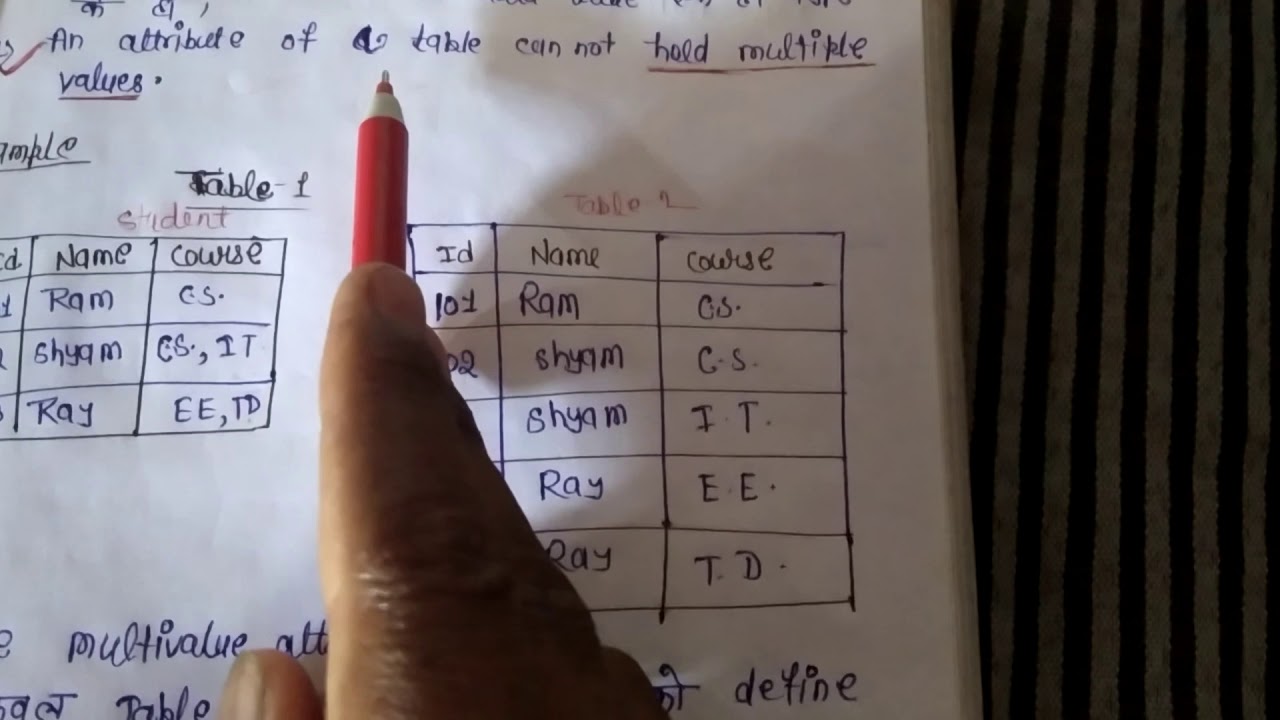 An attribute of a table can not hold multiple
values.
Table-1
Student
Name Course
Ram CS.
Shyam CS., IT
Ray EE, TD
Table 2
Id Name Course
101 Ram CS.
02 Shyam C.S.
Shyam I.T.
Ray E.E.
Ray T.D.
multivalue
Table को define